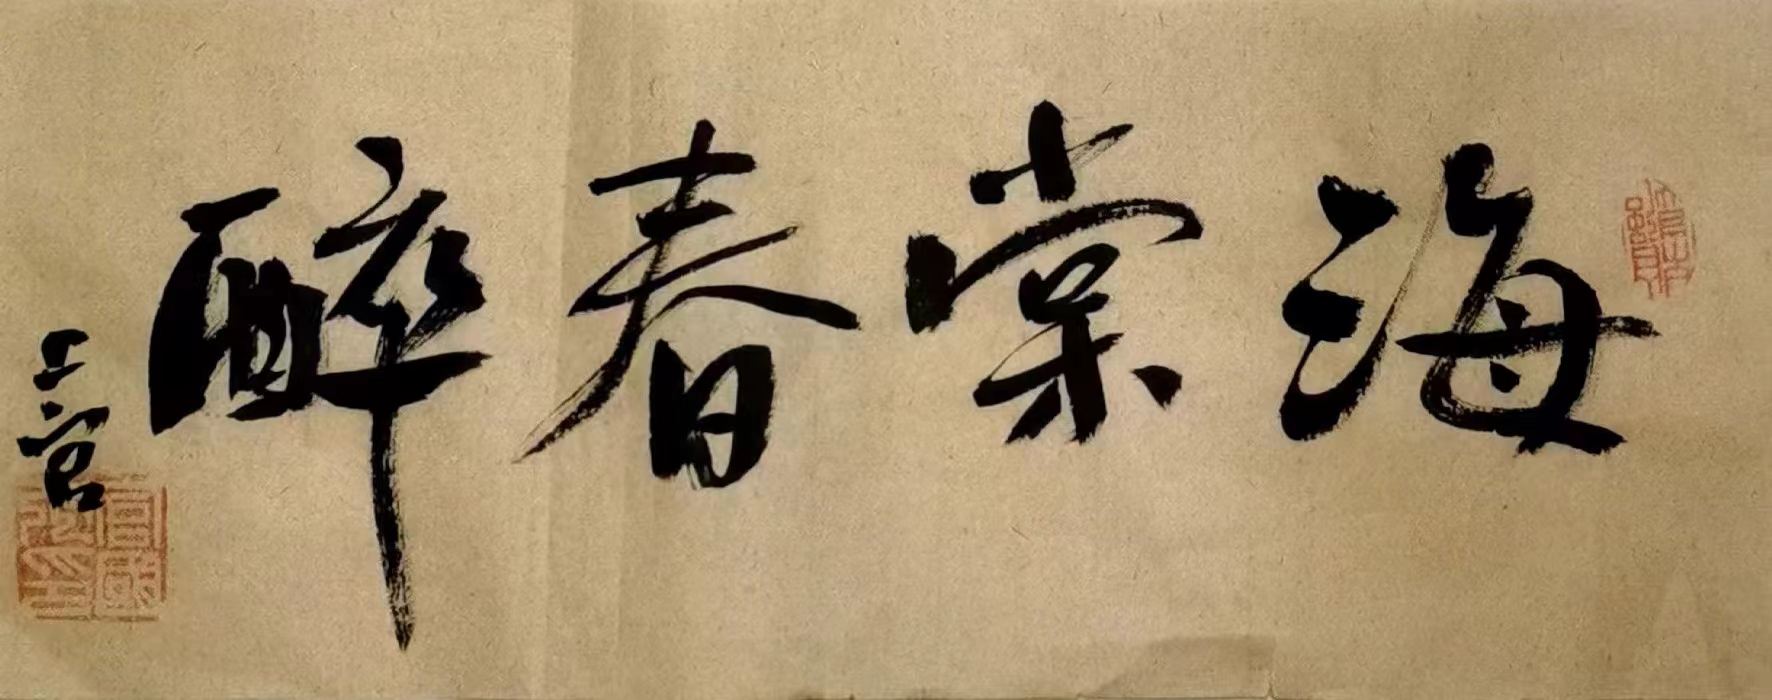 海棠春醉
上官